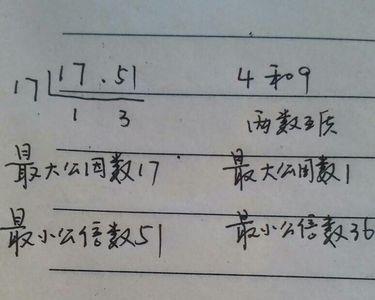 17 17 . 51 4和9
1 3 两数互质
最大公因数17 最大公因数1
最小公倍数51 最小公倍数36